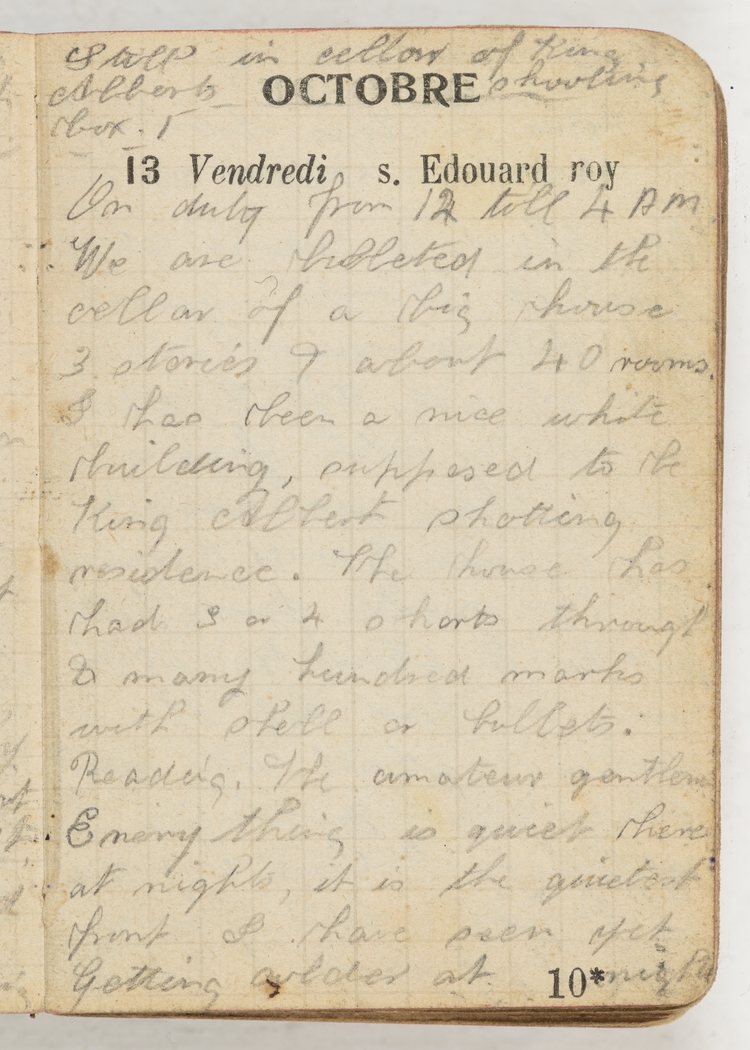 Still in cellar of King
Alberts shooting
OCTOBRE
box.
13 Vendredi s. Edouard roy
On duty from 12 till 4 AM
We are billeted in the
cellar of a big house
3 stories & about 40 rooms.
I has been a nice white
building, supposed to be
King Albert shotting
residence. The house has
had 3 or 4 shorts through
& many hundred marks
with shell or bullets.
Reading. The amateur gentlem
Enery thing is quiet here
at nights, it is the quietest
front I have seen yet
Getting colder at night
10*